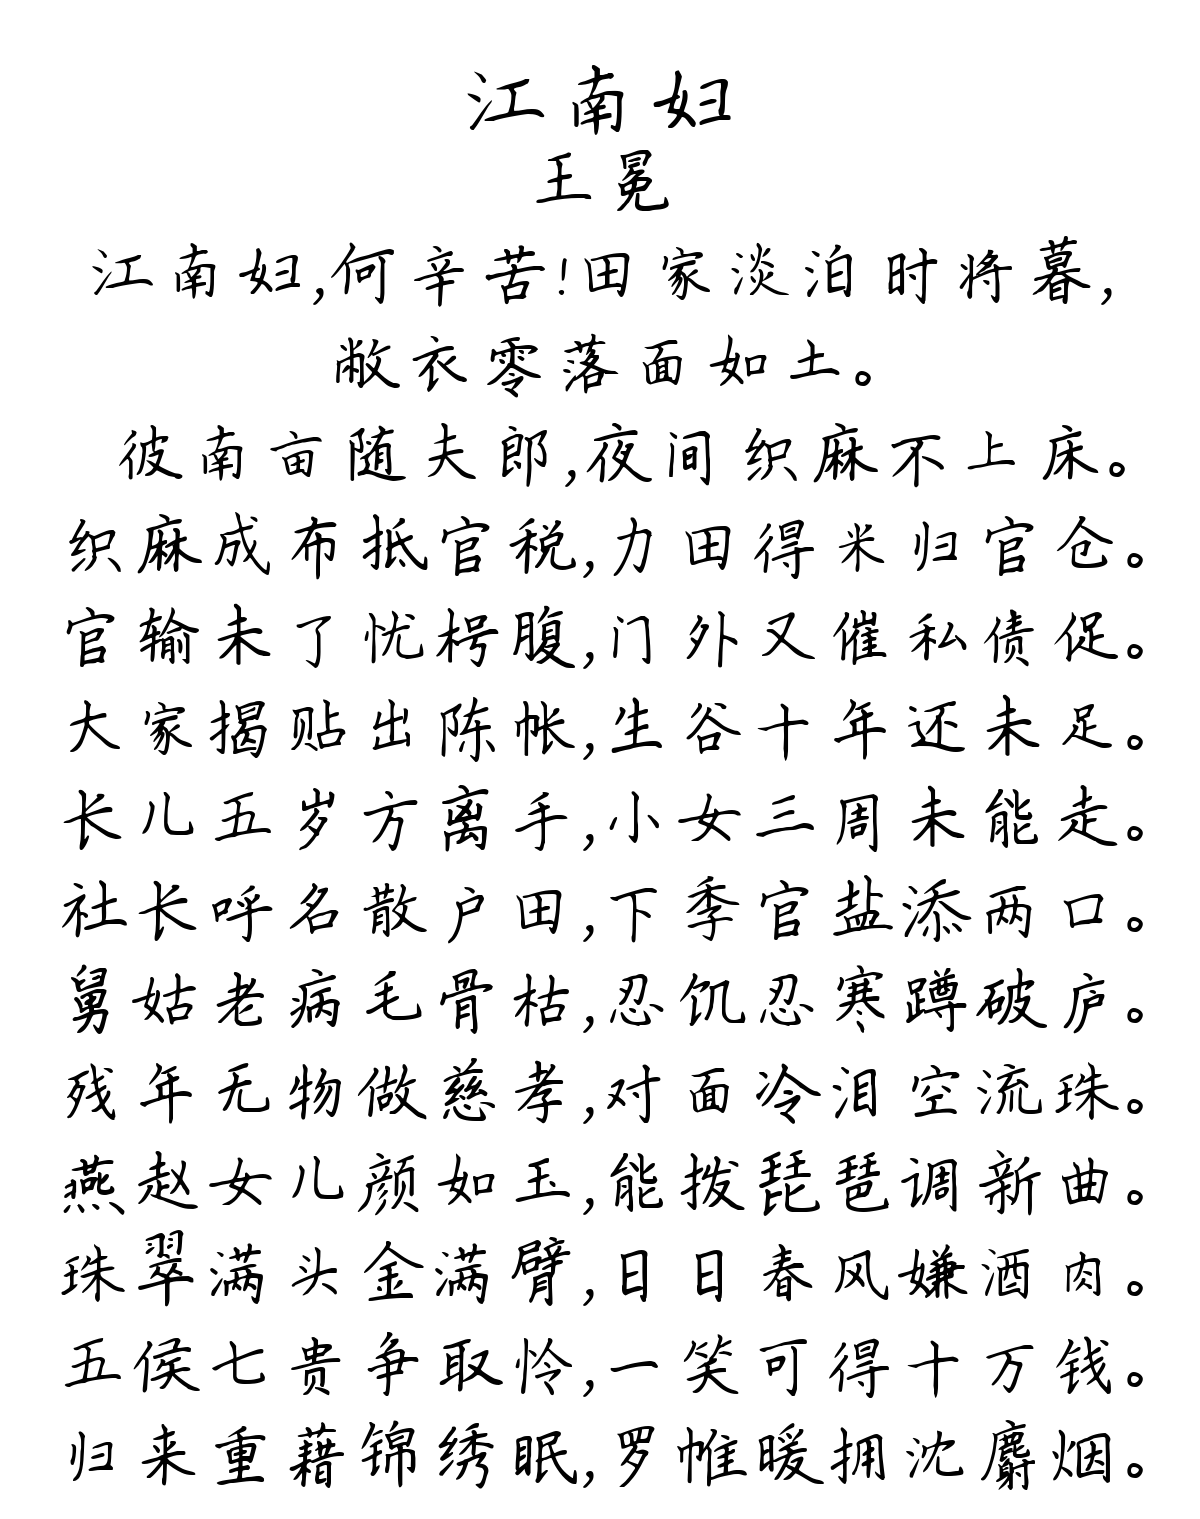 江南妇
王冕
江南妇,何辛苦!田家淡泊时将暮,
敝衣零落面如土。
彼南亩随夫郎,夜间织麻不上床。
织麻成布抵官税,力田得米归官仓。
官输未了忧枵腹,门外又催私债促。
大家揭贴出陈帐,生谷十年还未足。
长儿五岁方离手,小女三周未能走。
社长呼名散户田,下季官盐添两口。
舅姑老病毛骨枯,忍饥忍寒蹲破庐。
残年无物做慈孝,对面冷泪空流珠。
燕赵女儿颜如玉,能拨琵琶调新曲。
珠翠满头金满臂,日日春风嫌酒肉。
五侯七贵争取怜,一笑可得十万钱。
归来重藉锦绣眠,罗帷暖拥沈麝烟。